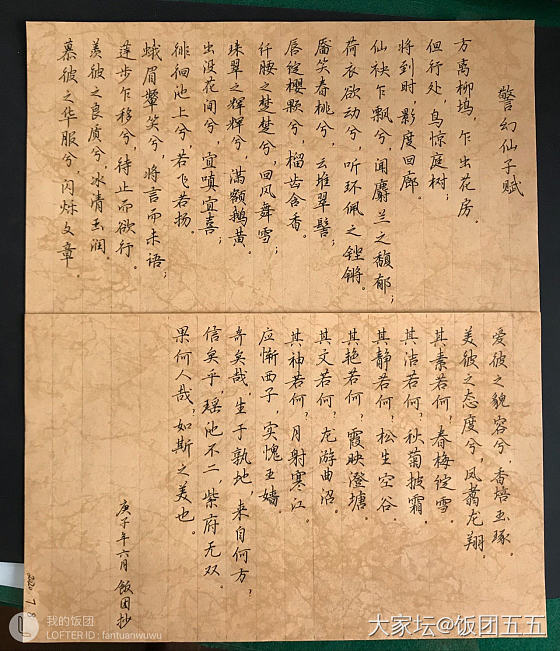 警幻仙子赋
方离柳坞,乍出花房。
但行处,鸟惊庭树;
将到时,影度回廊。
仙袂乍飘兮,闻麝兰之馥郁;
荷衣欲动兮,听环佩之铿锵。
靥笑春桃兮,云堆翠髻;
唇绽樱颗兮,榴齿含香。
纤腰之楚楚兮,回风舞雪;
珠翠之辉辉兮,满额鹅黄。
出没花间兮,宜嗔宜喜;
徘徊池上兮,若飞若扬。
蛾眉颦笑兮,将言而未语;
莲步乍移兮,待止而欲行。
羡彼之良质兮,冰清玉润。
慕彼之华服兮,闪烁文章。
爱彼之貌容兮,香培玉琢。
美彼之态度兮,凤翥龙翔。
其素若何,春梅绽雪。
其洁若何,秋菊披霜。
其静若何,松生空谷。
其艳若何,霞映澄塘。
其文若何,龙游曲沼。
其神若何,月射寒江。
应惭西子,实愧王嫱。
奇矣哉,生于孰地,来自何方,
信矣乎,瑶池不二,紫府无双。
果何人哉,如斯之美也。
庚子年六月 饭团抄
2020.7.8
我的饭团
LOFTER ID : fantuanwuwu
大家坛@饭团五五